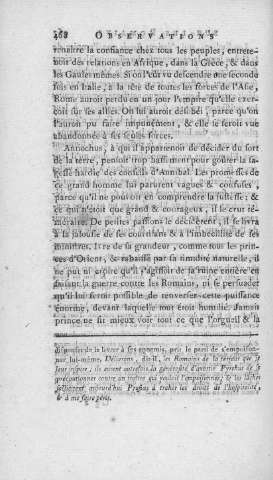 468 OBSERVATIONS
renaître la confiance chez tous les peuples, entrete-
noit des relations en Afrique, dans la Grèce, & dans
les Gaules mêmes. Si on l'eût vu descendre une seconde
fois en Italie, à la tête de toutes les forces de l'Asie,
Rome auroit perdu en un jour l'empire qu'elle exer-
çoit sur ses alliés. On lui auroit désobéi, parce qu'on
l'auroit pu faire impunément, & elle se seroit vue
abandonnée à ses seules forces.
Antiochus, à qui il appartenoit de décider du sort
de la terre, pensoit trop bassement pour goûter la sa-
gesse hardie des conseils d'Annibal. Les promesses de
ce grand homme lui parurent vagues & confuses,
parce qu'il ne pouvoit en comprendre la justesse; &
ce qui n'étoit que grand & courageux, il le crut té-
méraire. De petites passions le décidèrent; il se livra
à la jalousie de ses courtisans & à l'imbécillité de ses
ministres. Ivre de sa grandeur, comme tous les prin-
ces d'Orient, & rabaissé par sa timidité naturelle, il
ne put ni croire qu'il s'agissoit de sa ruine entière en
faisant la guerre contre les Romains, ni se persuader
qu'il lui seroit possible de renverser cette puissance
énorme, devant laquelle tout étoit humilié. Jamais
prince ne fit mieux voir tout ce que l'orgueil & la
disposées de le livrer à ses ennemis, prit le parti de s'empoison-
ner lui-même. Délivrons, dit-il, les Romains de la terreur que je
leur inspire; ils eurent autrefois la générosité d'avertir Pyrrhus de se
précautionner contre un traître qui vouloit l'empoisonner; & les lâches
sollicitent aujourd'hui Prusias à trahir les droits de l'hospitalité,
& à me faire périr.